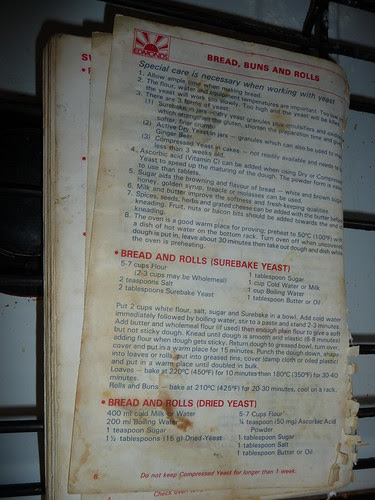 EDMONDS
BREAD, BUNS AND ROLLS
Special care is necessary when working with yeast
1. Allow ample time when making bread.
2. The flour, water and equipment temperatures are important. Too
the yeast will work too slowly. Too high and the yeast will be
3. There are 3 forms of yeast.
(1) Surebake in jars
which strengthen the gluten, shorten the preparation time and
softer, finer crumb.
(2) Active Dry Yeast in jars — granules which can also be used to
Ginger Beer.
(3) Compressed Yeast in cakes — not readily available and needs
less than 3 weeks old.
4. Ascorbic acid (Vitamin C) can be added when using Dry or Compressed
Yeast to speed up the maturing of the dough. The powder form is easier
to use than tablets.
5. Sugar aids the browning and flavour of bread — white and brown sugar,
honey, golden syrup, treacle or molasses can be used.
6. Milk and butter improve the softness and fresh-keeping qualities.
7. Spices, seeds, herbs and grated cheese can be added with the butter before
kneading. Fruit, nuts or bacon bits should be added towards the end of
kneading.
8. The oven is a good warm place for proving; preheat to 50°C (100°F) with
a dish of hot water on the bottom rack. Turn oven off when uncovered
dough is put in, leave about 30 minutes then take out dough and dish while
the oven is preheating.
• BREAD AND ROLLS (SUREBAKE YEAST)
5-7 cups Flour
(2-3 cups may be Wholemeal)
2 teaspoons Salt
2 tablespoons Surebake Yeast
1 tablespoon Sugar
1 cup Cold Water or Milk
1 cup Boiling Water
1 tablespoon Butter or Oil
Put 2 cups white flour, salt, sugar and Surebake in a bowl. Add cold water
immediately followed by boiling water, stir to a paste and stand 2-3 minutes.
Add butter and wholemeal flour (if used) then enough plain flour to give a soft
but not sticky dough. Knead until dough is smooth and elastic (6-8 minutes)
adding flour when dough gets sticky. Return dough to greased bowl, turn over,
cover and put in a warm place for 15 minutes. Punch the dough down, shape
into loaves or rolls, put into greased tins, cover (damp cloth or oiled plastic)
and put in a warm place until doubled in bulk.
Loaves — bake at 220°C (450°F) for 10 minutes then 180°C (350°F) for 30-40
minutes.
Rolls and Buns — bake at 210°C (425°F) for 20-30 minutes, cool on a rack.
• BREAD AND ROLLS (DRIED YEAST)
400 ml cold Milk or Water
200 ml Boiling Water
1 teaspoon Sugar
1½ tablespoons (15 g) Dried Yeast
5-7 Cups Flour
¼ teaspoon (50 mg) Ascorbic Acid
Powder
1 tablespoon Sugar
1 tablespoon Salt
1 tablespoon Butter or Oil
6
Do not keep Compressed Yeast for longer than 1 week.